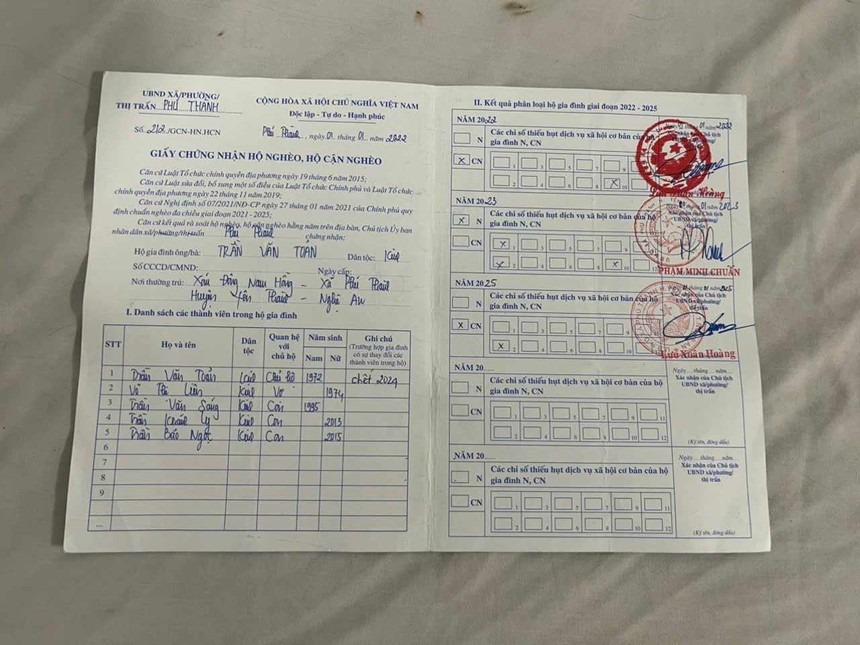 UBND XÃ/PHƯỜNG/
THỊ TRẤN PHÚ THÀNH
CỘNG HÒA XÃ HỘI CHỦ NGHĨA VIỆT NAM
Độc lập - Tự do - Hạnh phúc
Số: 212./GCN-HN.HCN
Phú Thành, ngày 01 tháng 01 năm 2022
GIẤY CHỨNG NHẬN HỘ NGHÈO, HỘ CẬN NGHÈO
Căn cứ Luật Tổ chức chính quyền địa phương ngày 19 tháng 6 năm 2015;
Căn cứ Luật sửa đổi, bổ sung một số điều của Luật Tổ chức Chính phủ và Luật Tổ chức
chính quyền địa phương ngày 22 tháng 11 năm 2019;
Căn cứ Nghị định số 07/2021/NĐ-CP ngày 27 tháng 01 năm 2021 của Chính phủ quy
định chuẩn nghèo đa chiều giai đoạn 2021 - 2025;
Căn cứ kết quả rà soát hộ nghèo, hộ cận nghèo hằng năm trên địa bàn, Chủ tịch Ủy ban
nhân dân xã/phường/thị trấn Phú Thành chứng nhận:
Hộ gia đình ông/bà: TRẦN VĂN TOẢN Dân tộc: Kinh
Số CCCD/CMND: Ngày cấp:
Nơi thường trú: Xóm Đông Nam Hồng - Xã Phú Thành
Huyện Yên Thành - Nghệ An
I. Danh sách các thành viên trong hộ gia đình
STT Họ và tên Dân tộc Quan hệ với chủ hộ Năm sinh Nam Nữ Ghi chú (Trường hợp gia đình có sự thay đổi các thành viên trong hộ)
1 Trần Văn Toản Kinh Chủ hộ 1972 chết 2024
2 Võ Thị Liên Kinh Vợ 1974
3 Trần Văn Sáng Kinh Con 1995
4 Trần Khánh Ly Kinh Con 2013
5 Trần Bảo Ngọc Kinh Con 2015
6
7
8
9
...
II. Kết quả phân loại hộ gia đình giai đoạn 2022 - 2025
NĂM 2022
N Các chỉ số thiếu hụt dịch vụ xã hội cơ bản của hộ
gia đình N, CN
x CN 1 3 5 7 9 11
2 4 6 8 x 10 12
01 năm 2022
NĂM 2023
x N Các chỉ số thiếu hụt dịch vụ xã hội cơ bản của hộ
gia đình N, CN
CN 1 x 3 5 7 9 11
x 2 4 6 8 x 10 12
PHẠM MINH CHUẨN
NĂM 2025
N Các chỉ số thiếu hụt dịch vụ xã hội cơ bản của hộ
gia đình N, CN
x CN 1 3 5 7 9 11
x 2 4 6 8 10 12
Xác nhận của Chủ tịch
UBND xã/phường/
thị trấn
Lưu Xuân Hoàng
NĂM 20....
N Các chỉ số thiếu hụt dịch vụ xã hội cơ bản của hộ
gia đình N, CN
CN 1 3 5 7 9 11
2 4 6 8 10 12
Ngày... tháng... năm...
Xác nhận của Chủ tịch
UBND xã/phường/
thị trấn
(Ký tên, đóng dấu)
NĂM 20....
N Các chỉ số thiếu hụt dịch vụ xã hội cơ bản của hộ
gia đình N, CN
CN 1 3 5 7 9 11
2 4 6 8 10 12
Ngày... tháng... năm...
Xác nhận của Chủ tịch
UBND xã/phường/
thị trấn
(Ký tên, đóng dấu)